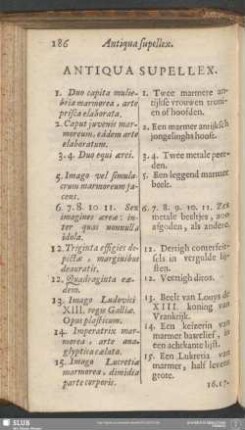 186 Antiqua supellex.
ANTIQUA SUPELLEX.
1. Duo capita mulie-
bria marmorea, arte
prisca elaborata.
2. Caput juvenis mar-
moreum, eâdem arte
elaboratum.
3. 4. Duo equi ærei.
5. Imago vel simula-
crum marmoreum ja-
cens.
6. 7. 8. 10. 11. Sex
imagines æreæ: in-
ter quas nonnulla
idola.
12. Triginta effigies de-
pictæ, marginibus
deauratis.
12. Quadraginta eæ-
dem.
13. Imago Ludovici
XIII. regis Galliæ.
Opus plasticum.
14. Imperatrix mar-
morea, arte ana-
glyptica cælata.
15. Imago Lucretiæ
marmorea, dimidia
parte corporis.
1. Twee marmere an-
tijkse vrouwen troni-
en of hoofden.
2. Een marmer antijksch
jongelinghs hooft.
3. 4. Twee metale peer-
den.
5. Een leggend marmere
beelt.
6. 7. 8. 9. 10. 11. Zes
metale beeltjes,
afgoden, als andere.
12. Dertigh conterfeit-
sels in vergulde lijs-
ten.
12. Veertigh ditos.
13. Beelt van Louys de
XIII. koning van
Vrankrijk.
14. Een keizerin van
marmer basrelief, in
een achtkante lijst.
15. Een Lukretia van
marmer, half levens
grote.
16. 17.
SLUB